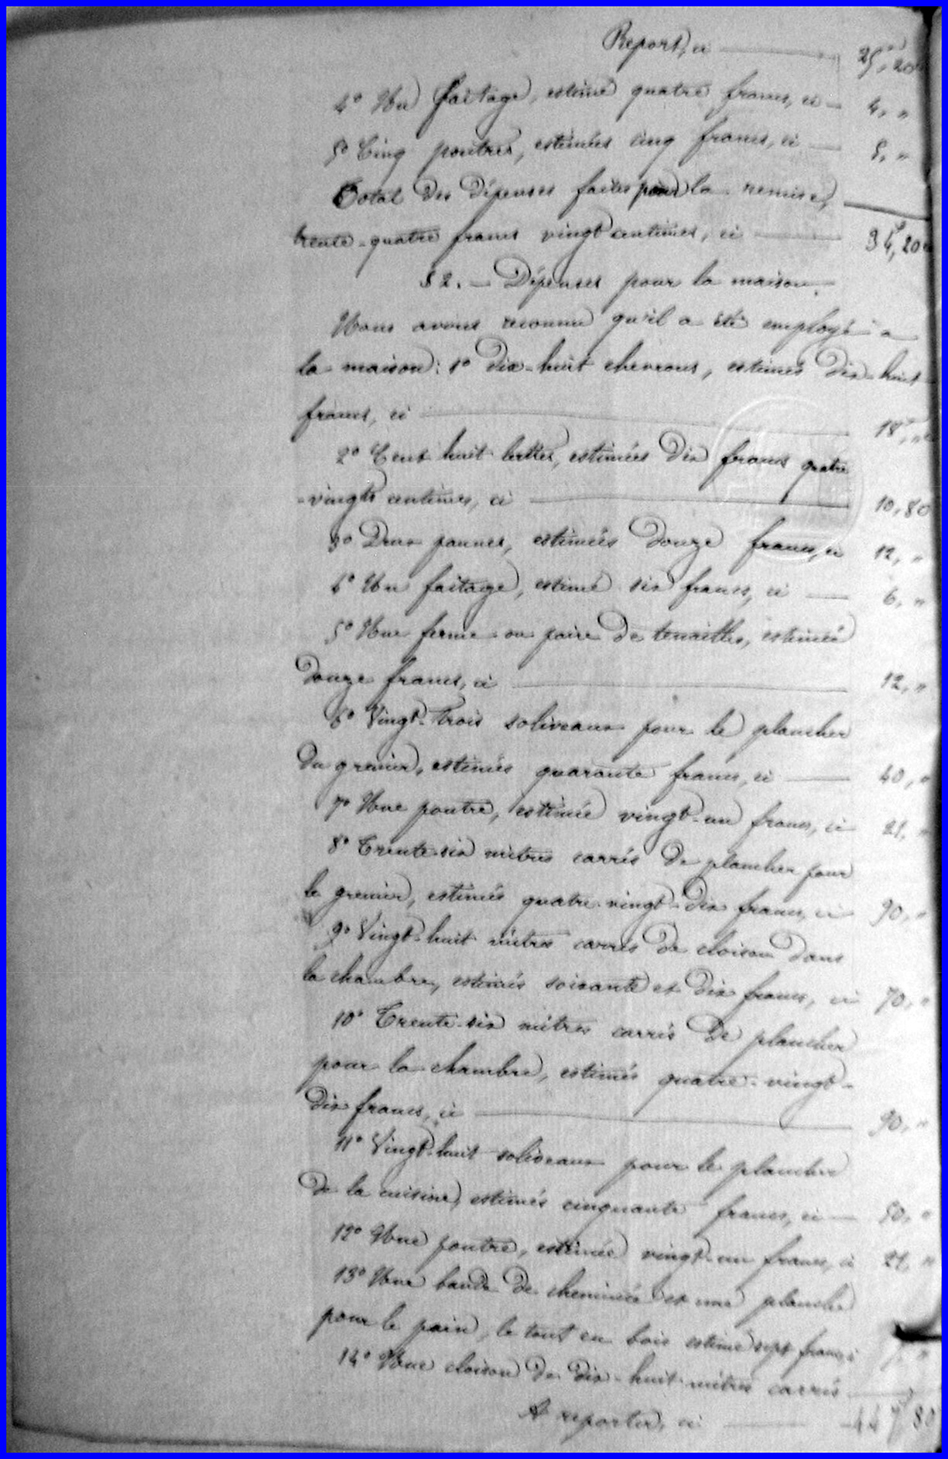 Report, ci 25f,20c
4° Un faitage, estimé quatre francs, ci 4, "
5° Cinq poutres, estimées cinq francs, ci 5, "
Total des dépenses faites pour la remise,
trente-quatre francs vingt centimes, ci 34f,20c
§ 2. — Dépenses pour la maison.
Nous avons reconnu qu'il a été employé a
la maison: 1° dix-huit chevrons, estimés dix-huit
francs, ci 18f, "
2° Cent huit lattes, estimées dix francs quatre
-vingts centimes, ci 10, 80
3° Deux pannes, estimées douze francs, ci 12, "
4° Un faitage, estimé six francs, ci 6, "
5° Une ferme ou paire de tenailles, estimée
douze francs, ci 12, "
6° Vingt-trois soliveaux pour le plancher
du grenier, estimés quarante francs, ci 40, "
7° Une poutre, estimée vingt-un francs, ci 21, "
8° Trente-six mètres carrés de plancher pour
le grenier, estimés quatre-vingt-dix francs, ci 90, "
9° Vingt-huit mètres carrés de cloison dans
la chambre, estimés soixante et dix francs, ci 70, "
10° Trente-six mètres carrés de plancher
pour la chambre, estimés quatre-vingt-
dix francs, ci 90, "
11° Vingt-huit soliveaux pour le plancher
de la cuisine, estimés cinquante francs, ci 50, "
12° Une poutre, estimée vingt-un francs, ci 21, "
13° Une bande de cheminée et une planche
pour le pain, le tout en bois estimé sept francs 7, "
14° Une cloison de dix-huit mètres carrés
A reporter, ci 447f,80